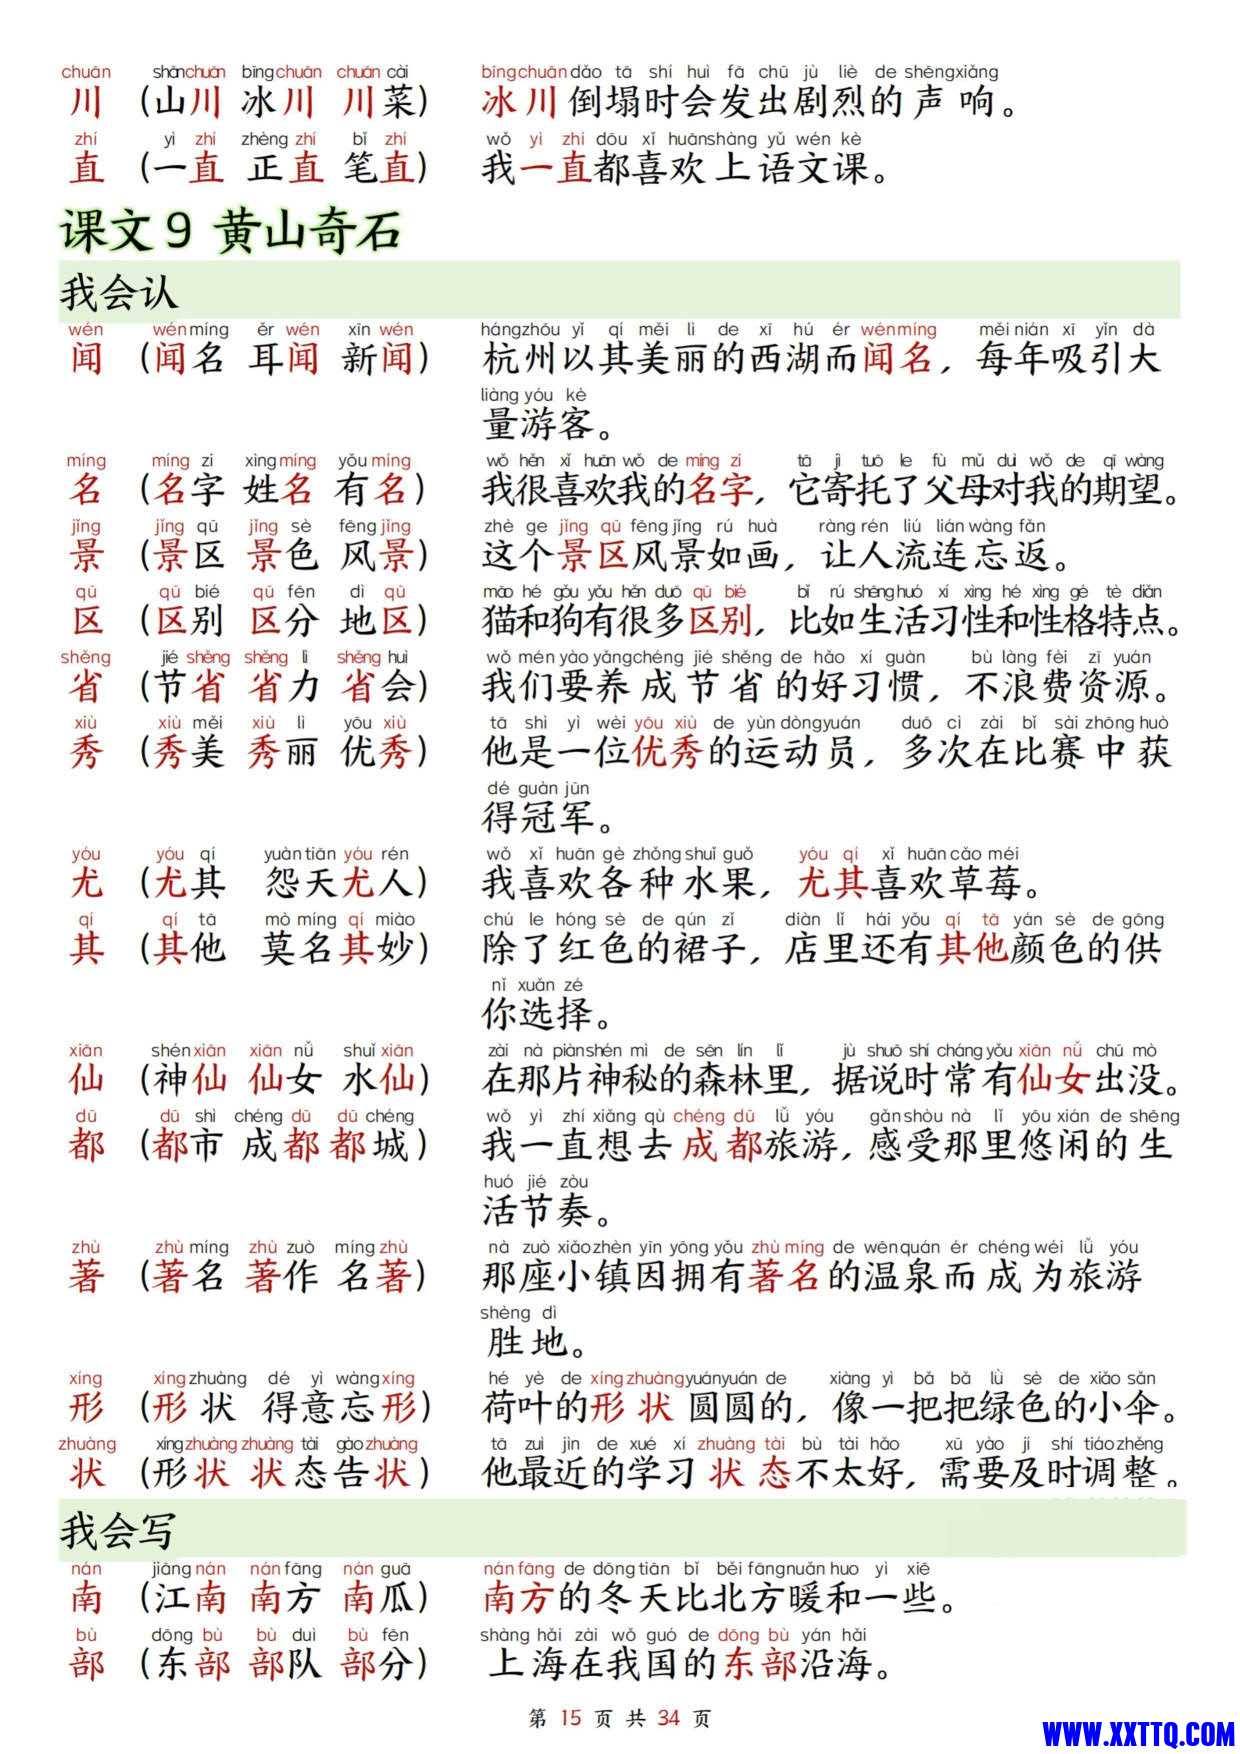 chuān shānchuān bīngchuān chuān cài bīngchuān dǎo tā shí huì fā chū jù liè de shēngxiǎng
川 (山川 冰川 川菜) 冰川倒塌时会发出剧烈的声响。
zhí yì zhí zhèng zhí bǐ zhí wǒ yì zhí dōu xǐ huānshàng yǔ wén kè
直 (一直 正直 笔直) 我一直都喜欢上语文课。
课文9 黄山奇石
我会认
wén wén míng ěr wén xīn wén hángzhōu yǐ qí měi lì de xī hú ér wénmíng měi nián xī yǐn dà
闻 (闻名 耳闻 新闻) 杭州以其美丽的西湖而闻名，每年吸引大
liàng yóu kè
量游客。
míng míng zi xìng míng yǒu míng wǒ hěn xǐ huān wǒ de míng zi tā jì tuō le fù mǔ duì wǒ de qī wàng
名 (名字 姓名 有名) 我很喜欢我的名字，它寄托了父母对我的期望。
jǐng jǐng qū jǐng sè fēng jǐng zhè ge jǐng qū fēng jǐng rú huà ràng rén liú lián wàng fǎn
景 (景区 景色 风景) 这个景区风景如画，让人流连忘返。
qū qū bié qū fēn dì qū māo hé gǒu yǒu hěn duō qū bié bǐ rú shēng huó xí xìng hé xìng gé tè diǎn
区 (区别 区分 地区) 猫和狗有很多区别，比如生活习性和性格特点。
shěng jié shěng shěng lì shěng huì wǒ mén yào yǎngchéng jié shěng de hǎo xí guàn bù làng fèi zī yuán
省 (节省 省力 省会) 我们要养成节省的好习惯，不浪费资源。
xiù xiù měi xiù lì yōu xiù tā shì yì wèi yōu xiù de yùn dòngyuán duō cì zài bǐ sài zhōng huò
秀 (秀美 秀丽 优秀) 他是一位优秀的运动员，多次在比赛中获
dé guàn jūn
得冠军。
yóu yóu qí yuàn tiān yóu rén wǒ xǐ huān gè zhǒng shuǐ guǒ yóu qí xǐ huān cǎo méi
尤 (尤其 怨天尤人) 我喜欢各种水果，尤其喜欢草莓。
qí qí tā mò míng qí miào chú le hóng sè de qún zǐ diàn lǐ hái yǒu qí tā yán sè de gōng
其 (其他 莫名其妙) 除了红色的裙子，店里还有其他颜色的供
nǐ xuǎn zé
你选择。
xiān shén xiān xiān nǚ shuǐ xiān zài nà piàn shén mì de sēn lín lǐ jù shuō shí cháng yǒu xiān nǚ chū mò
仙 (神仙 仙女 水仙) 在那片神秘的森林里，据说时常有仙女出没。
dū dū shì chéng dū dū chéng wǒ yì zhí xiǎng qù chéng dū lǚ yóu gǎn shòu nà lǐ yōu xián de shēng
都 (都市 成都 都城) 我一直想去成都旅游，感受那里悠闲的生
huó jié zòu
活节奏。
zhù zhù míng zhù zuò míng zhù nà zuò xiǎo zhèn yīn yōng yǒu zhù míng de wēn quán ér chéng wéi lǚ yóu
著 (著名 著作 名著) 那座小镇因拥有著名的温泉而成为旅游
shèng dì
胜地。
xíng xíng zhuàng dé yì wàng xíng hé yè de xíng zhuàng yuányuán de xiàng yì bǎ bǎ lǜ sè de xiǎo sǎn
形 (形状 得意忘形) 荷叶的形状圆圆的，像一把把绿色的小伞。
zhuàng xíng zhuàng zhuàng tài gào zhuàng tā zuì jìn de xué xí zhuàng tài bù tài hǎo xū yào jí shí tiáo zhěng
状 (形状 状态 告状) 他最近的学习状态不太好，需要及时调整。
我会写
nán jiāng nán nán fāng nán guā nán fāng de dōng tiān bǐ běi fāng nuǎn huo yì xiē
南 (江南 南方 南瓜) 南方的冬天比北方暖和一些。
bù dōng bù bù duì bù fēn shàng hǎi zài wǒ guó de dōng bù yán hǎi
部 (东部 部队 部分) 上海在我国的东部沿海。
第 15 页 共 34 页
WWW.XXTTQ.COM